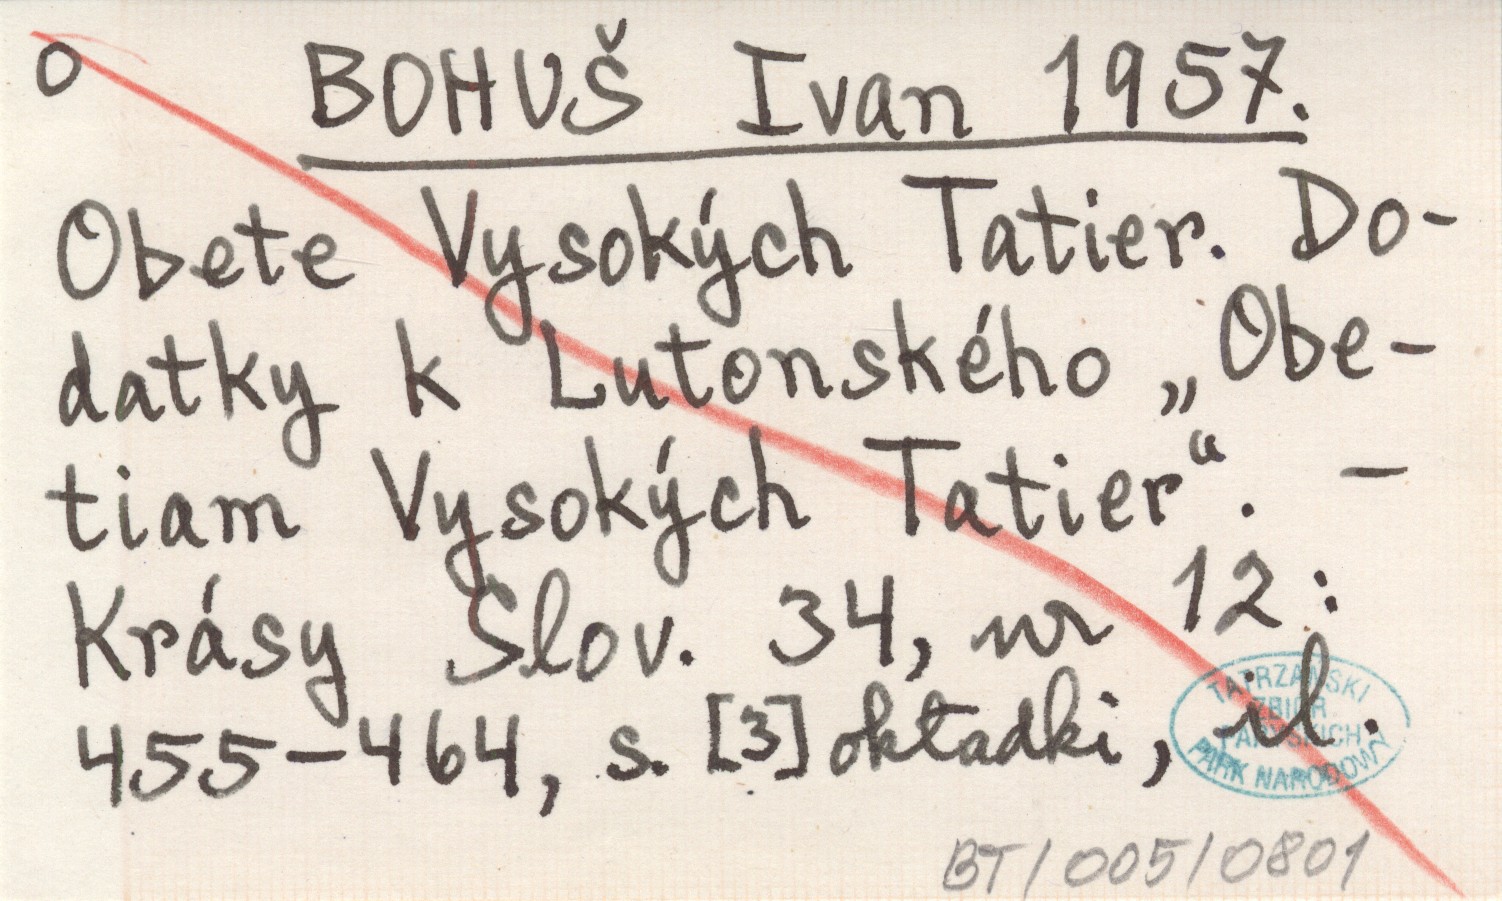 o BOHUŠ Ivan 1957.
Obete Vysokých Tatier. Do-
datky k Lutonského „Obe-
tiam Vysokých Tatier“. —
Krásy Slov. 34, nr 12:
455–464, s. [3] okładki, il.
TATRZAŃSKI
ZBIOR
PARYSKICH
PARK NARODOWY
BT/005/0801